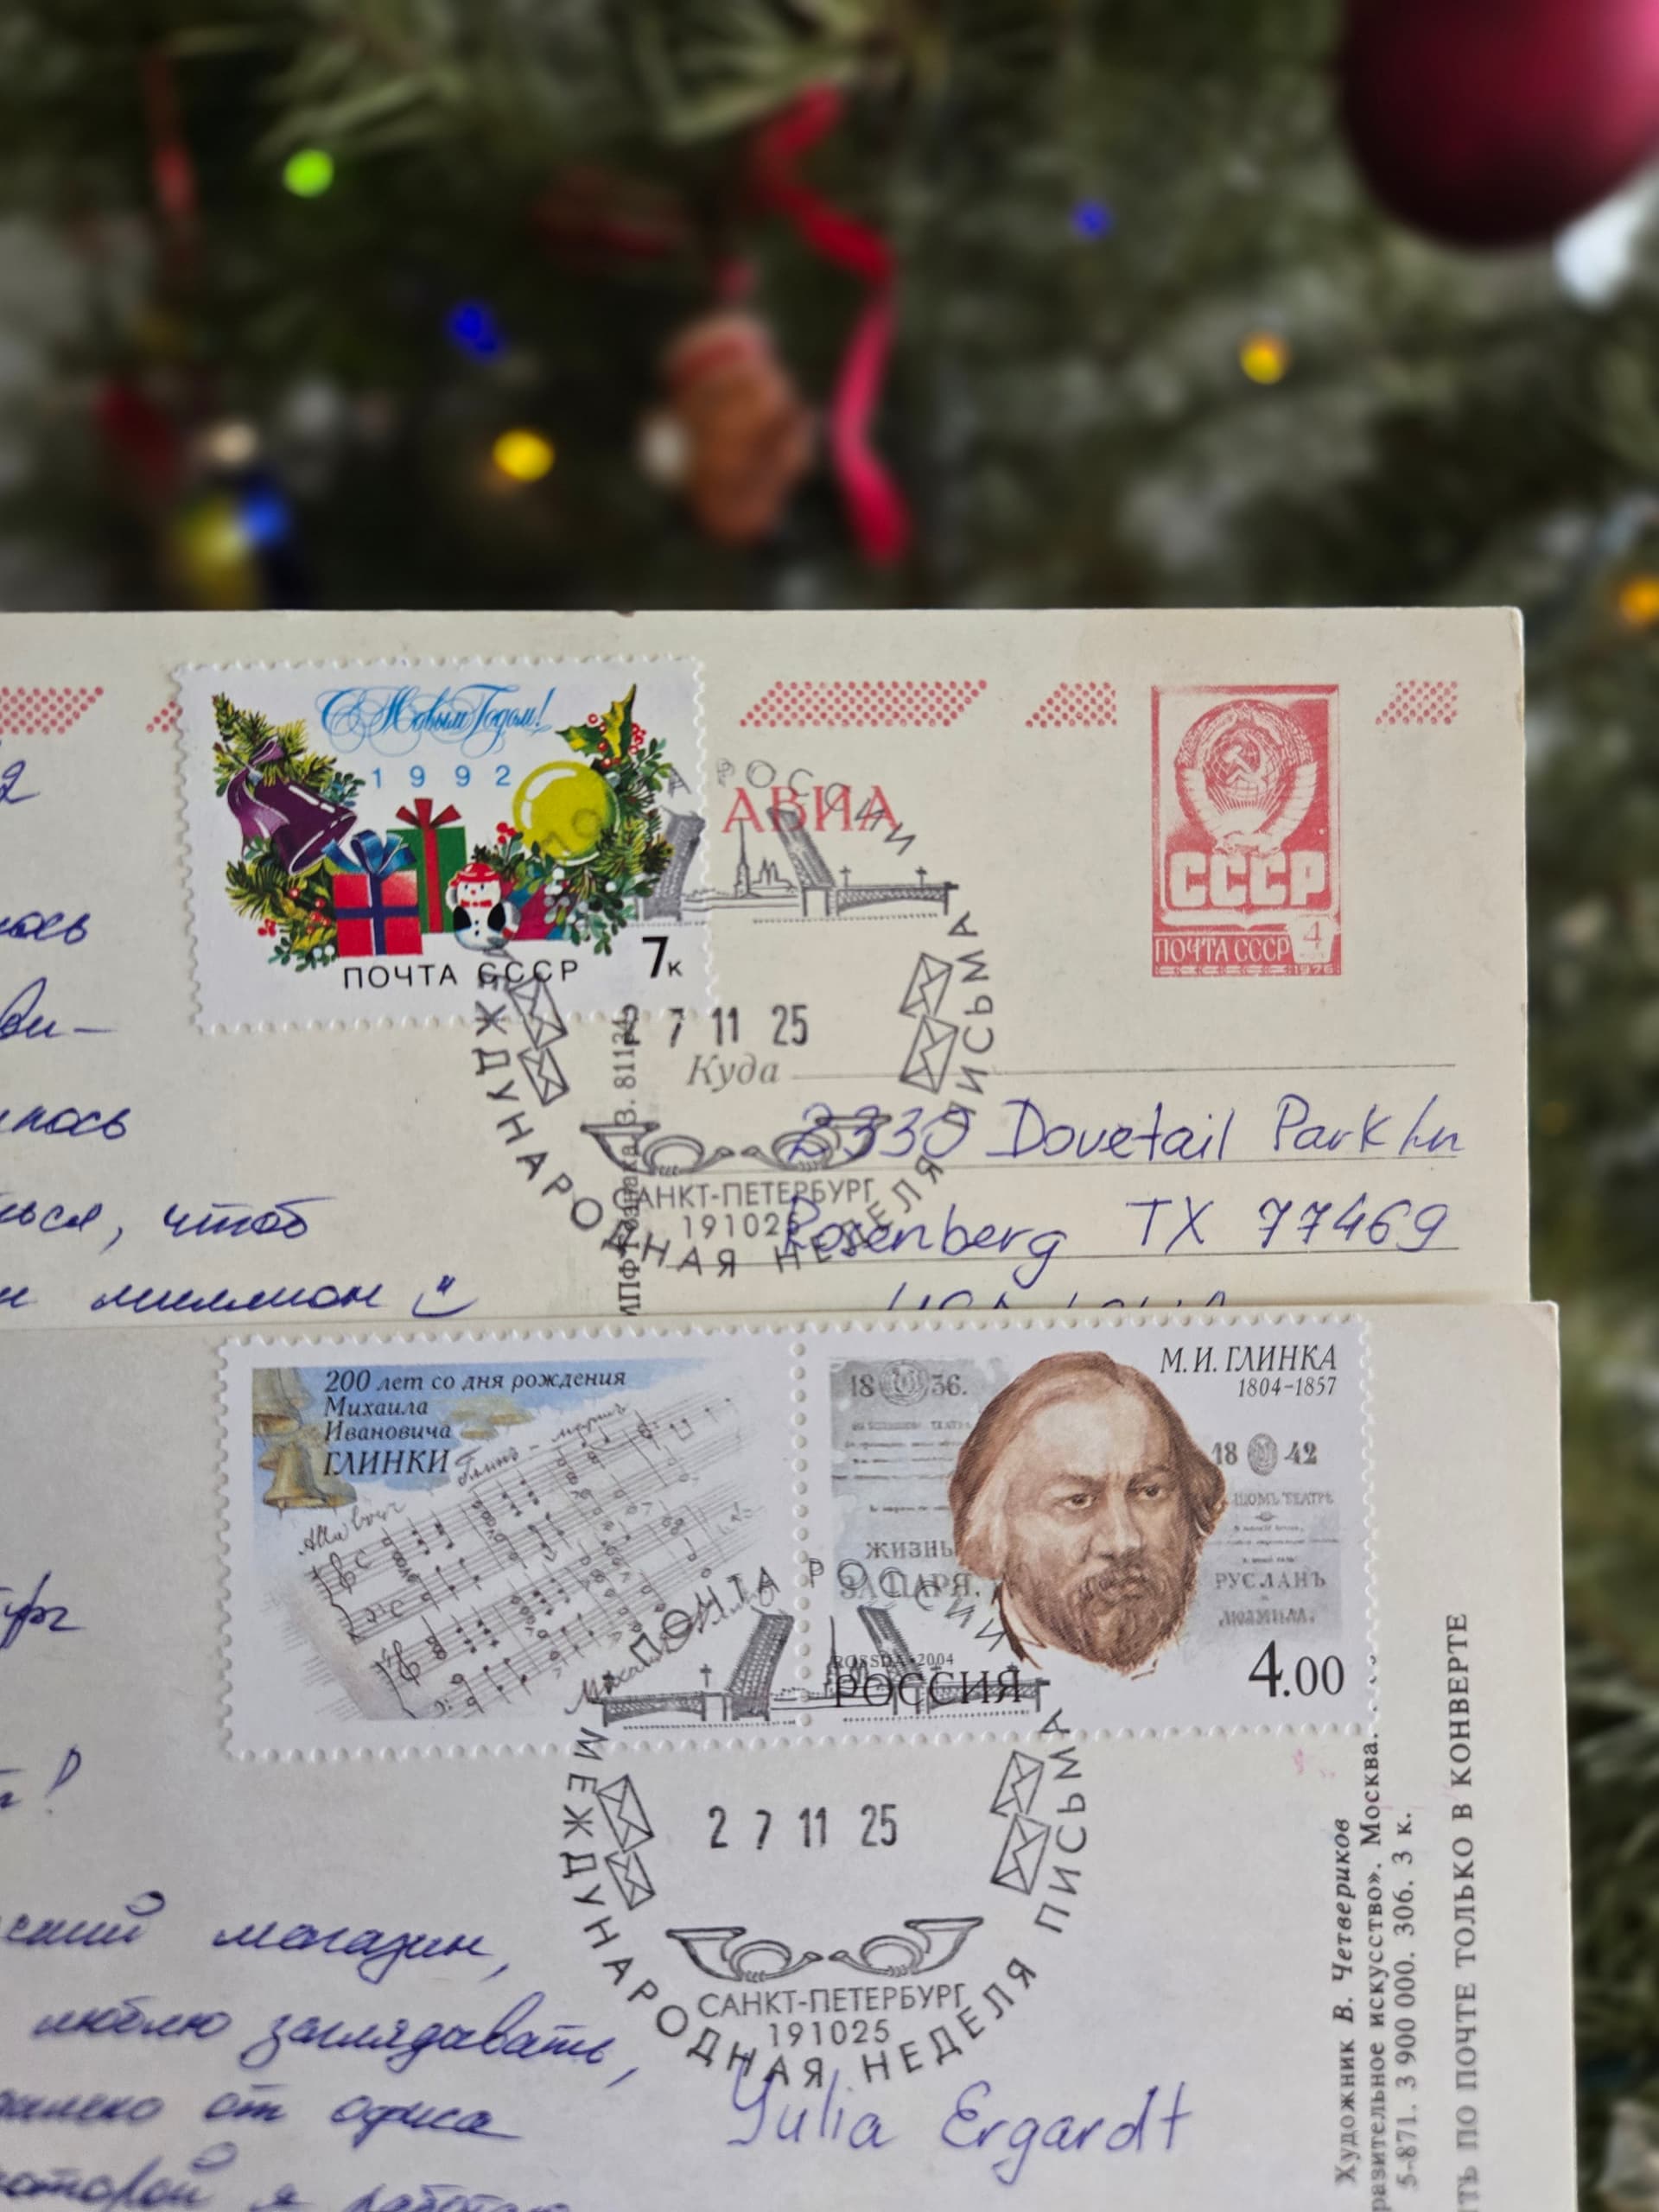 С Новым Годом!
1992
ПОЧТА СССР
7к
АВИА
СССР
ПОЧТА СССР 4
1976
РОССИИ
МЕЖДУНАРОДНАЯ НЕДЕЛЯ ПИСЬМА
27 11 25
САНКТ-ПЕТЕРБУРГ
191025
Куда
2330 Dovetail Park Ln
Rosenberg TX 77469
чтоб
миллион
200 лет со дня рождения
Михаила
Ивановича
ГЛИНКИ
М. И. ГЛИНКА
1804–1857
1836.
1842
ЖИЗНЬ
ЗА ЦАРЯ.
РУСЛАНЪ
ЛЮДМИЛА.
ROSSIJA • 2004
РОССИЯ
4.00
ПОЧТА РОССИИ
МЕЖДУНАРОДНАЯ НЕДЕЛЯ ПИСЬМА
27 11 25
САНКТ-ПЕТЕРБУРГ
191025
магазин,
люблю заглядывать,
от офиса
которой я работаю
Yulia Ergardt
Художник В. Четвериков
искусство». Москва.
5-871. 3 900 000. 306. 3 к.
ПО ПОЧТЕ ТОЛЬКО В КОНВЕРТЕ